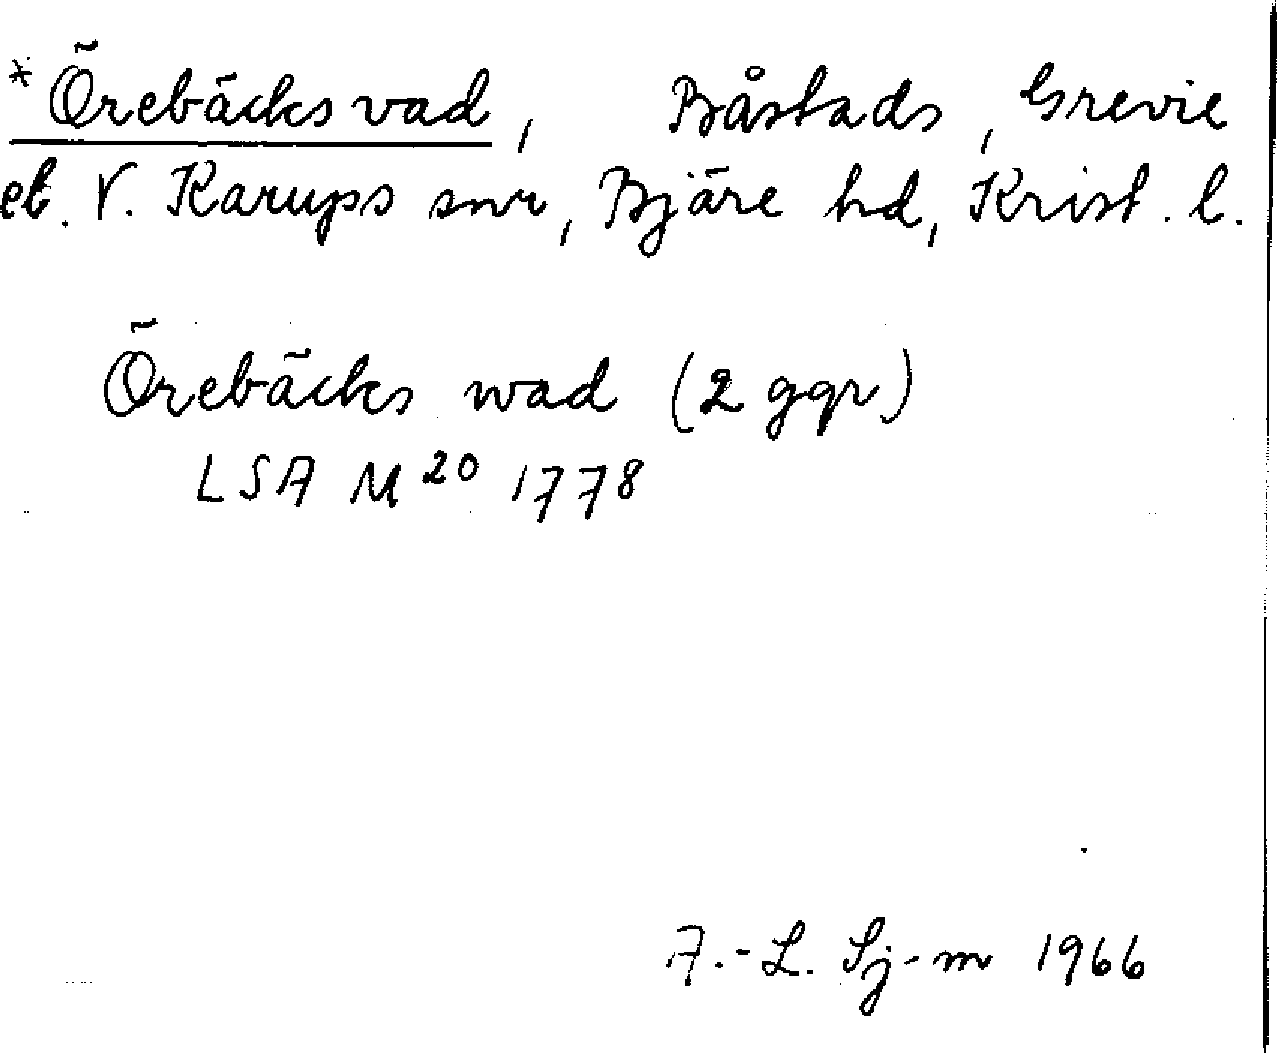 * Örebäcks vad, Båstads, Grevie
et. V. Karups snr, Bjäre hd, Krist. l.
Örebäcks wad (2 ggr)
LSA M20 1778
A.-L. Sj-m 1966